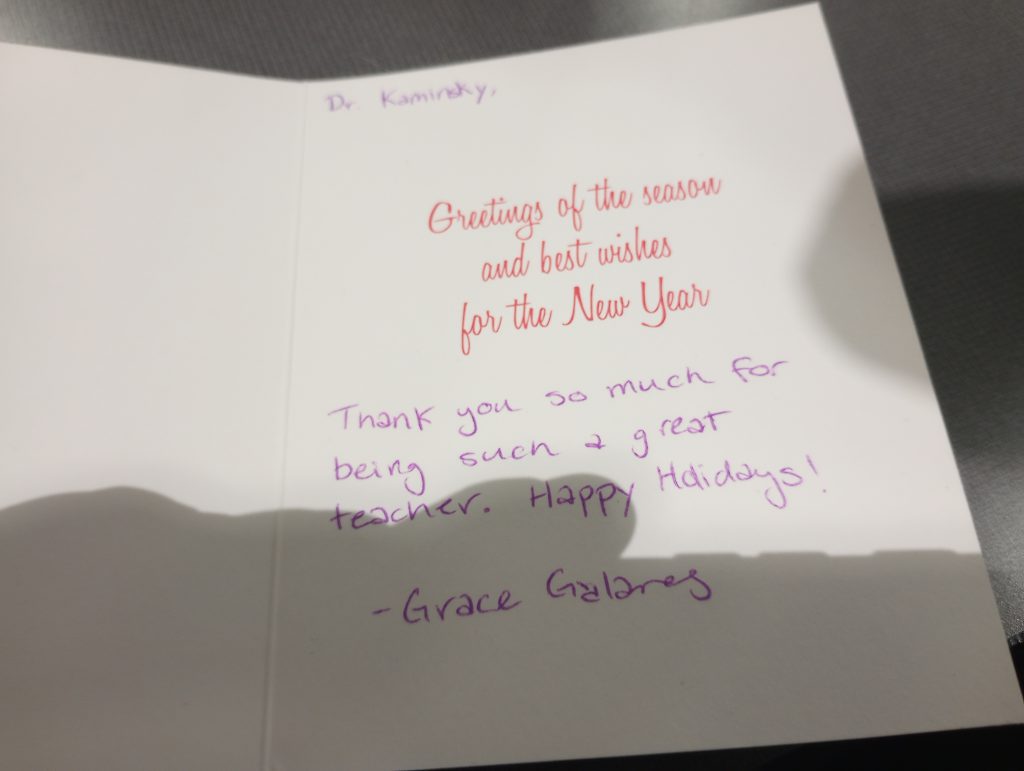 Dr. Kaminsky,
Greetings of the season
and best wishes
for the New Year
Thank you so much for
being such a great
teacher. Happy Holidays!
- Grace Galares